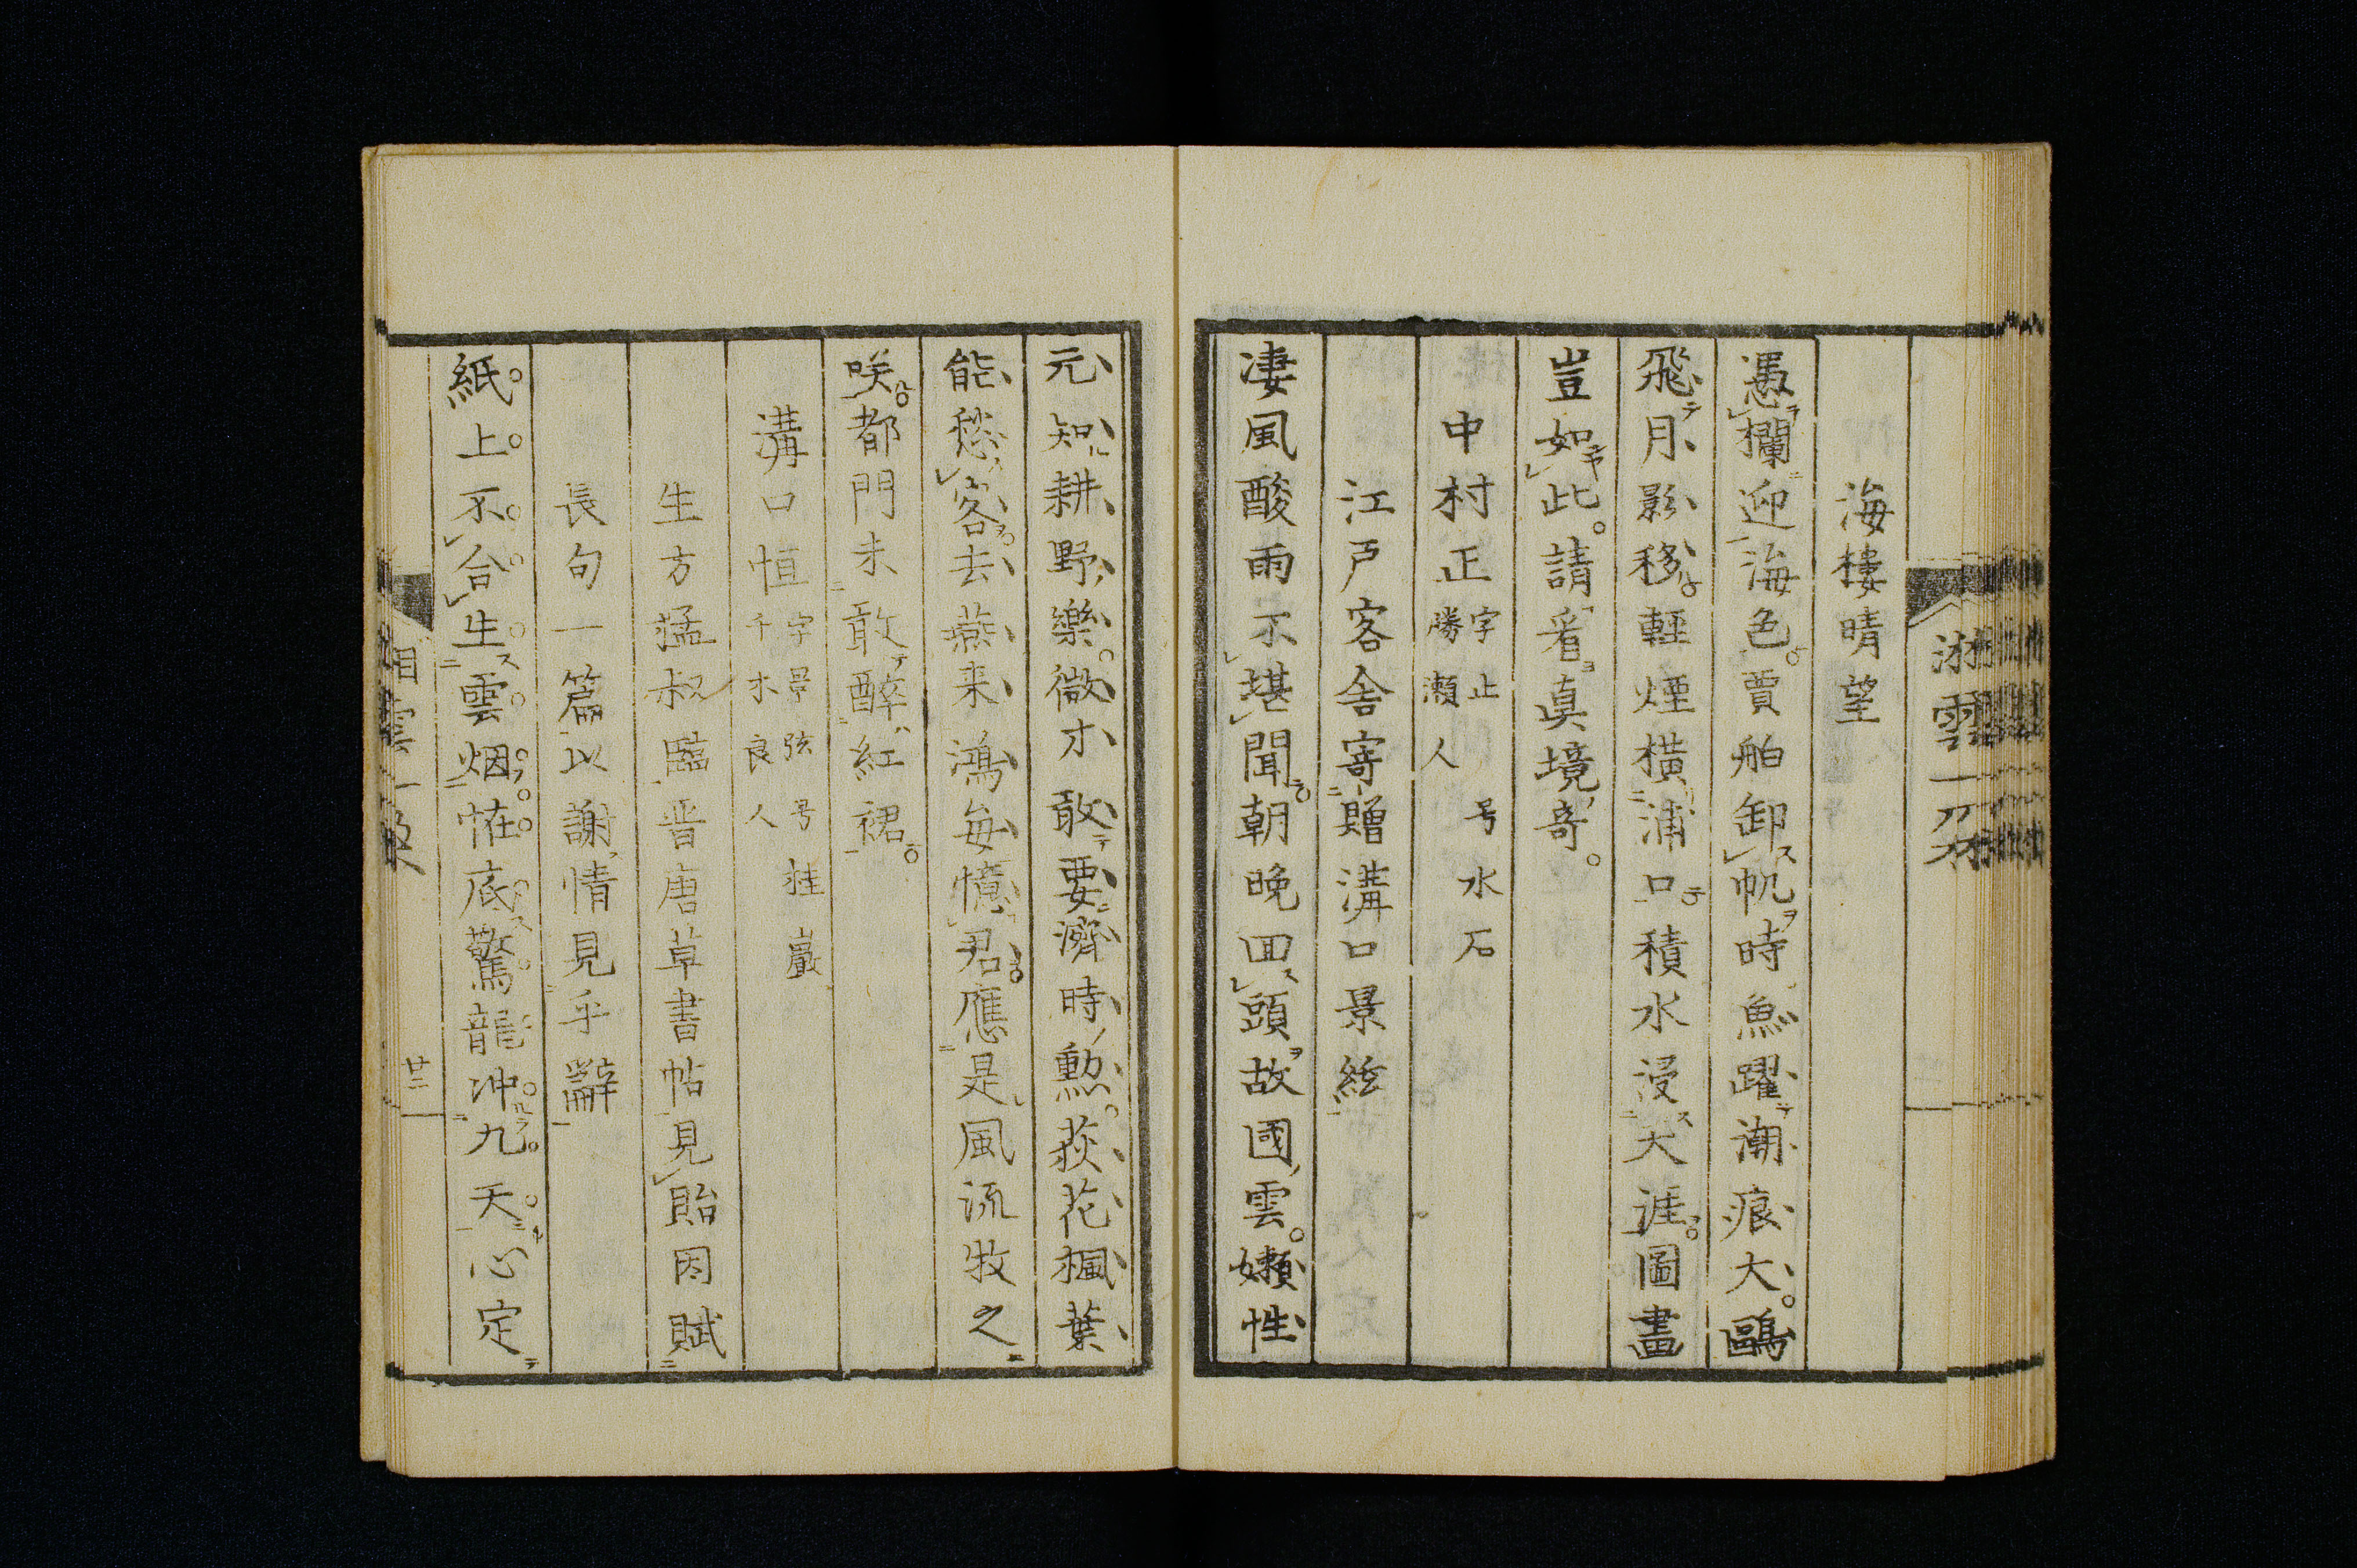 海樓晴望
憑欄迎海色賈舶卸帆時魚躍潮痕大鷗
飛月影移輕煙橫浦口積水浸天涯圖畫
豈如此請看真境奇
中村正 字士止 号水石 勝瀬人
江戸客舎寄贈溝口景絃
凄風酸雨不堪聞朝晩回頭故國雲嬾性
元知耕野樂微才敢要濟時勲荻花楓葉
能愁客去燕来鴻毎憶君應是風流牧之
咲都門未敢醉紅裙
溝口恒 字景弦 号 巖 千木良人
生方猛叔臨晋唐草書帖見貽因賦
長句一篇以謝情見乎辭
紙上不合生雲烟恠底驚龍冲九天心定
廿二